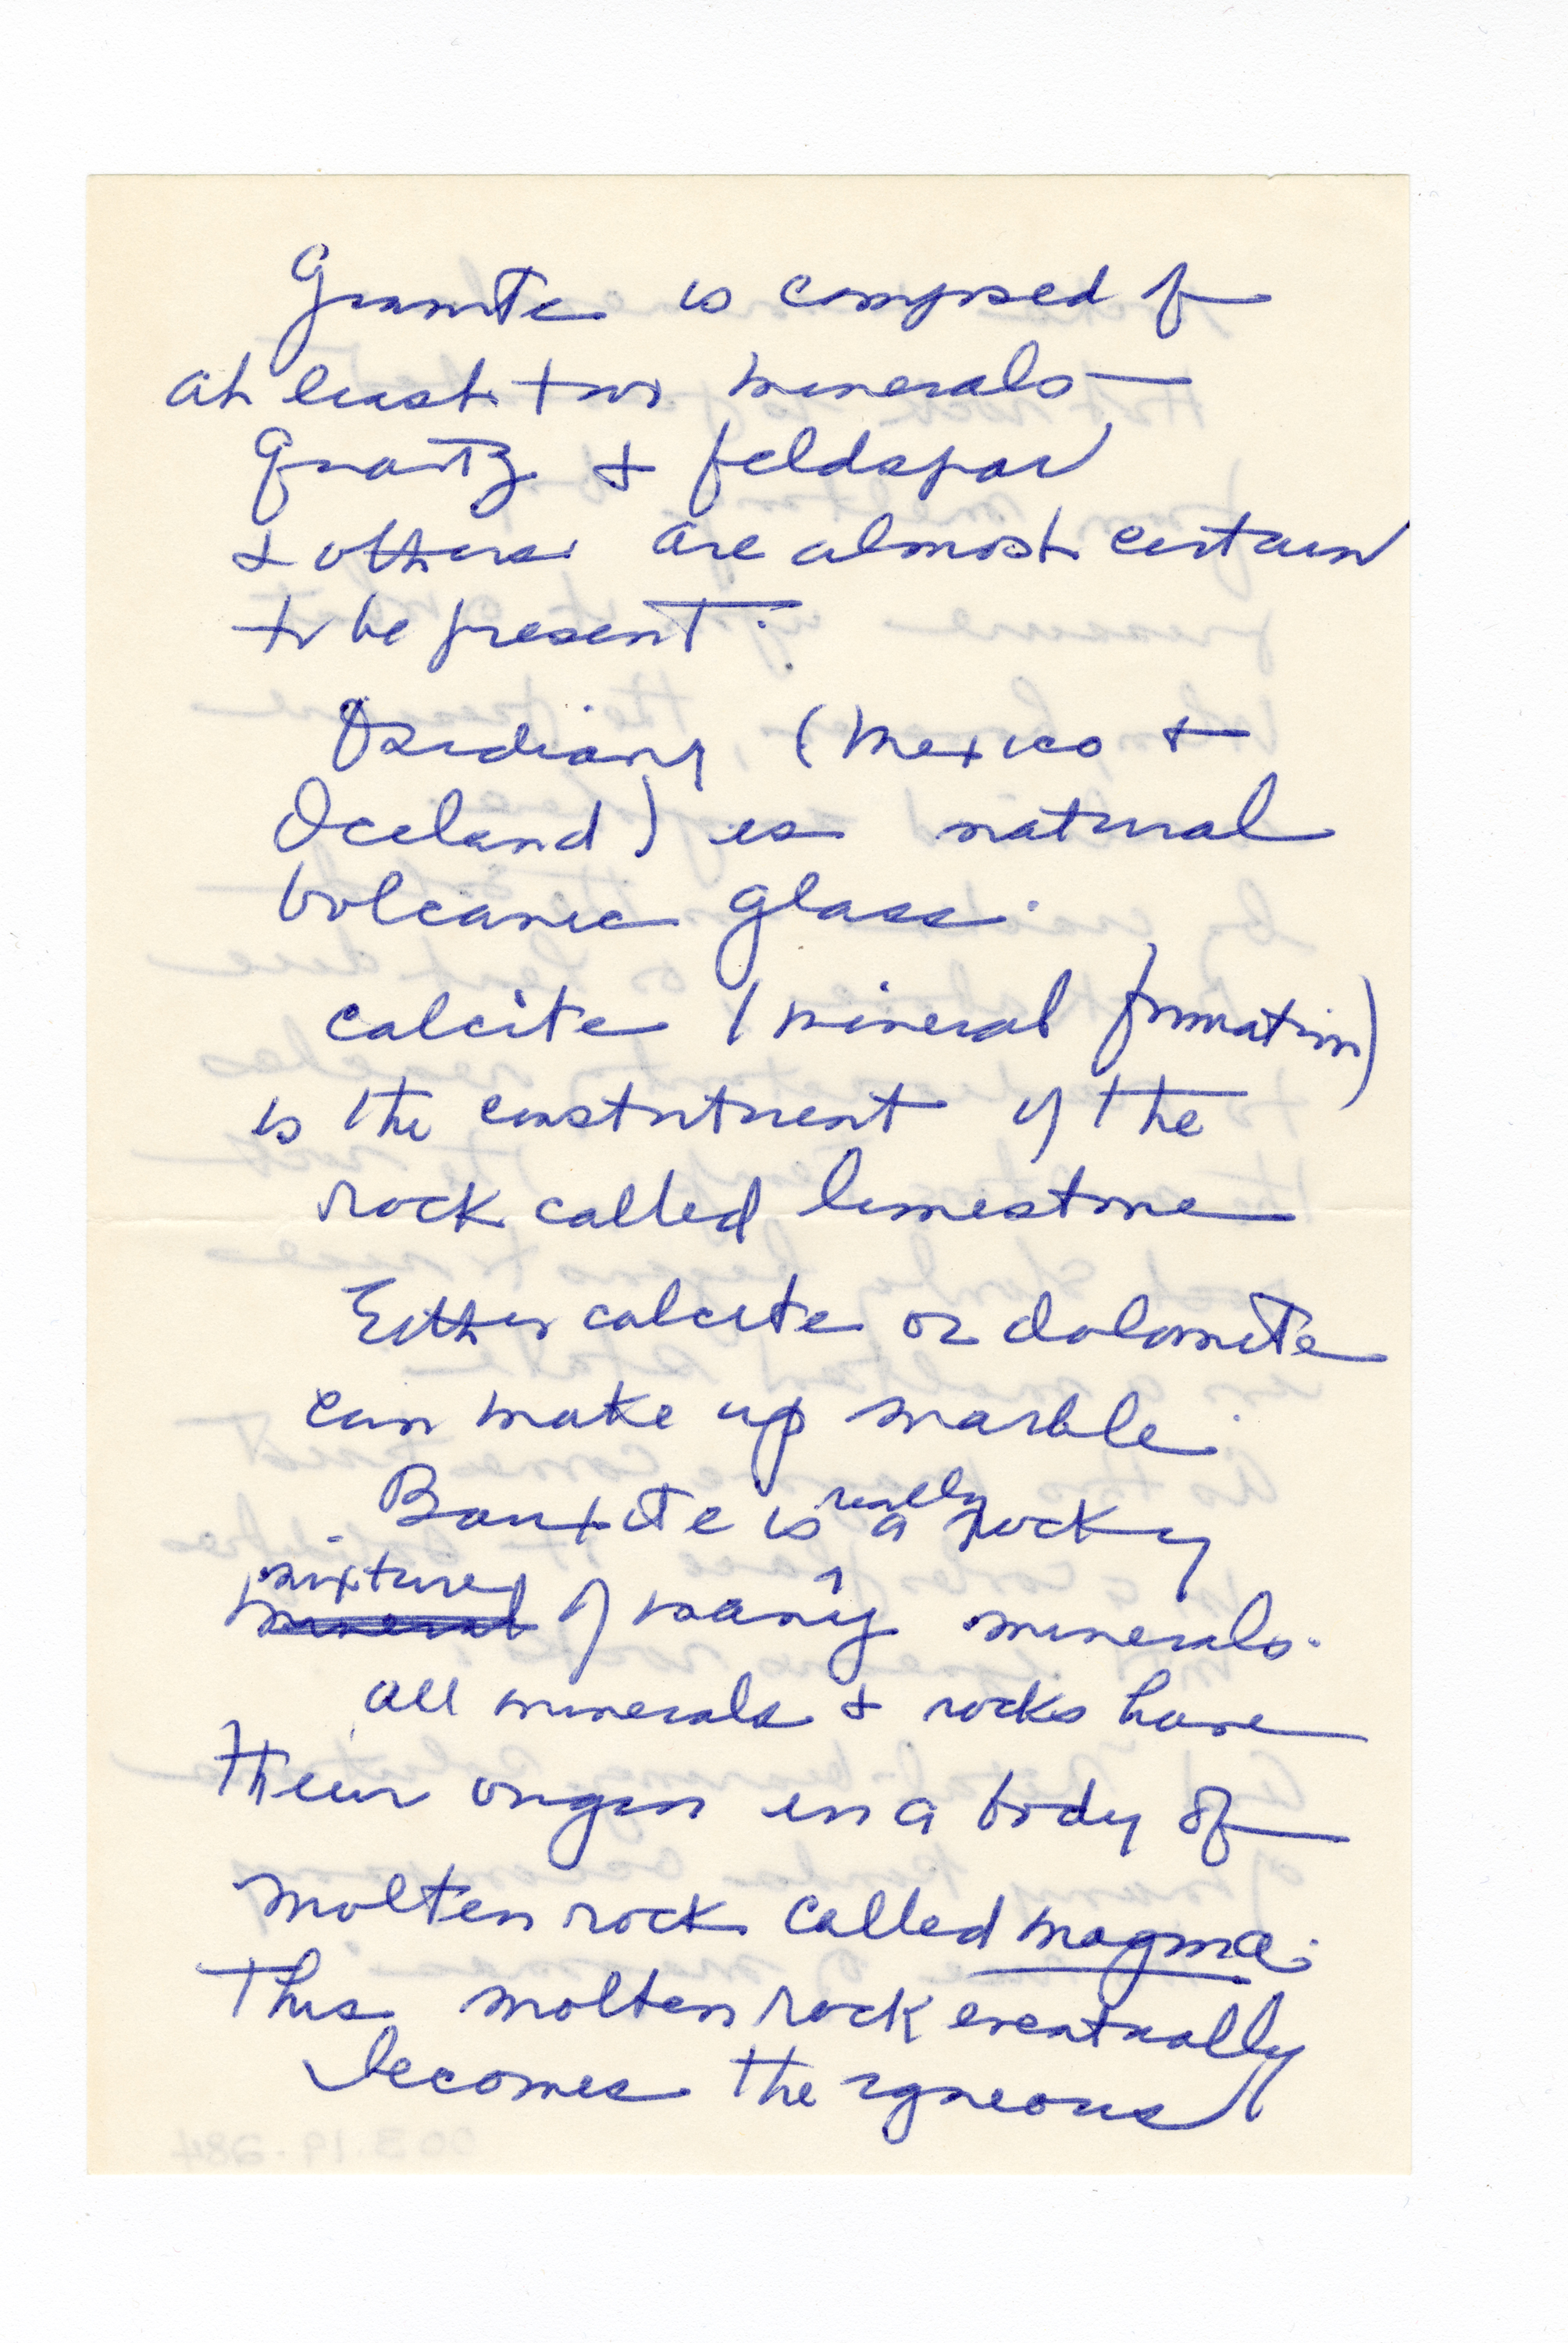 Granite is composed of
at least two minerals —
quartz & feldspar
& others are almost certain
to be present.
Obsidian (Mexico &
Iceland) is natural
volcanic glass.
Calcite (mineral formation)
is the constituent of the
rock called limestone
Either calcite or dolomite
can make up marble.
Bauxite is really a rocky
mixture mineral of many minerals.
All minerals & rocks have
their origin in a body of
molten rock called magma.
This molten rock eventually
becomes the igneous